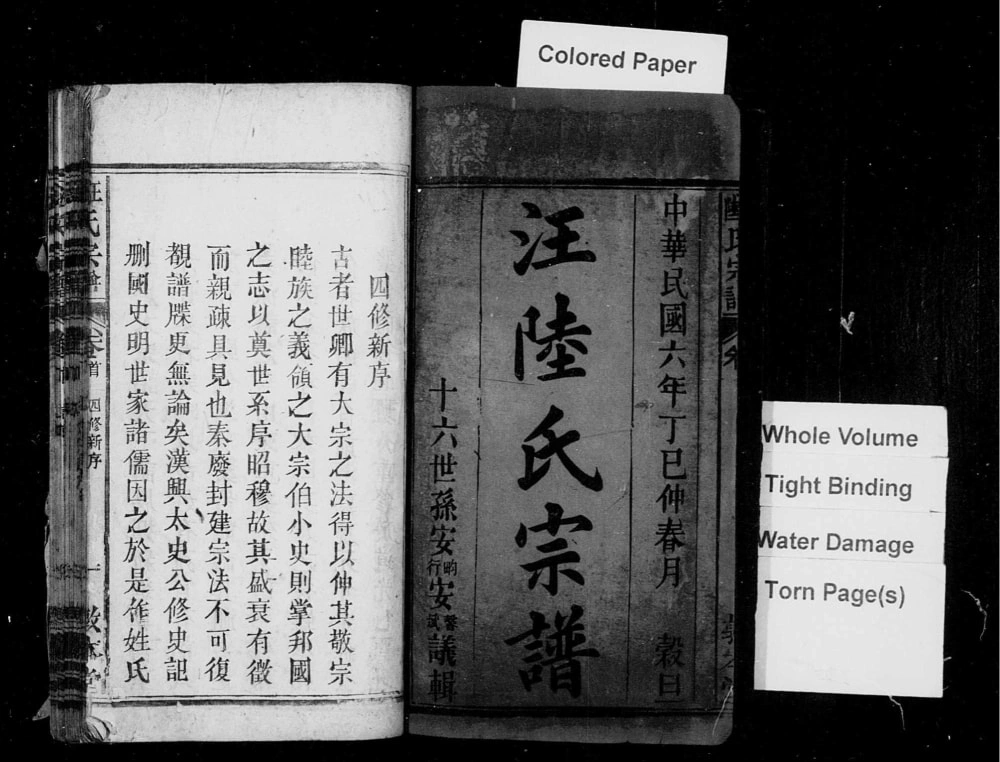 Colored Paper
Whole Volume
Tight Binding
Water Damage
Torn Page(s)
中華民國六年丁巳仲春月 穀旦
汪陸氏宗譜
十六世孫安昀行安警試議輯
四修新序
古者世卿有大宗之法得以伸其敬宗
睦族之義領之大宗伯小史則掌邦國
之志以奠世系序昭穆故其盛衰有徵
而親疎具見也秦廢封建宗法不可復
覩譜牒更無論矣漢興太史公修史記
刪國史明世家諸儒因之於是作姓氏
汪氏宗譜 卷首 四修新序 一 敦本堂